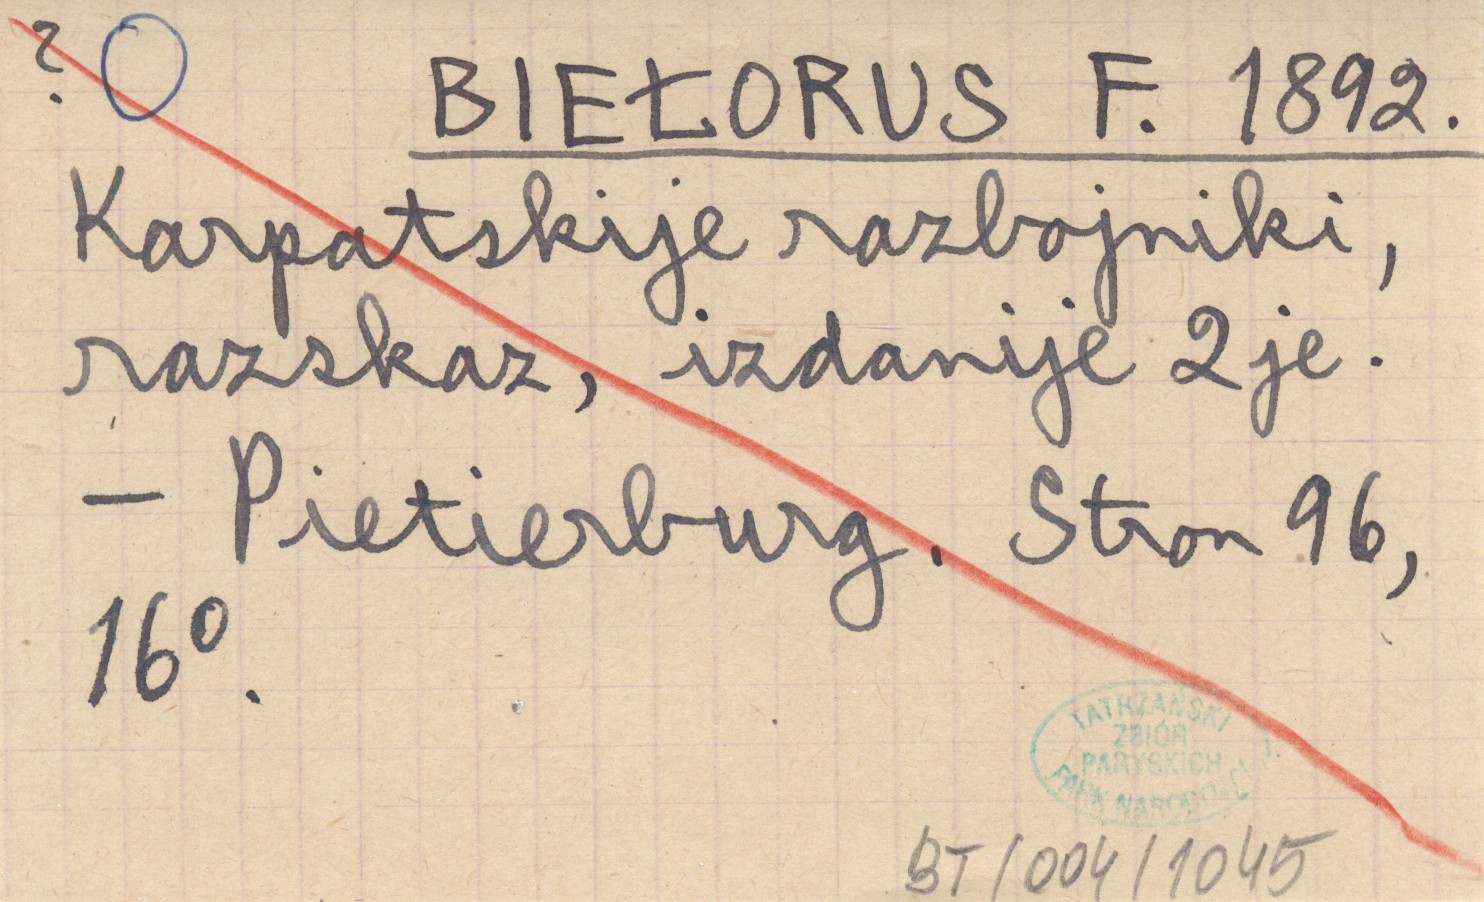 ?
BIEŁORUS F. 1892.
Karpatskije razbojniki,
razskaz, izdanije 2je.
— Pietierburg. Stron 96,
16º.
TATRZAŃSKI
ZBIÓR
PARYSKICH
PARK NARODOWY
BT/004/1045